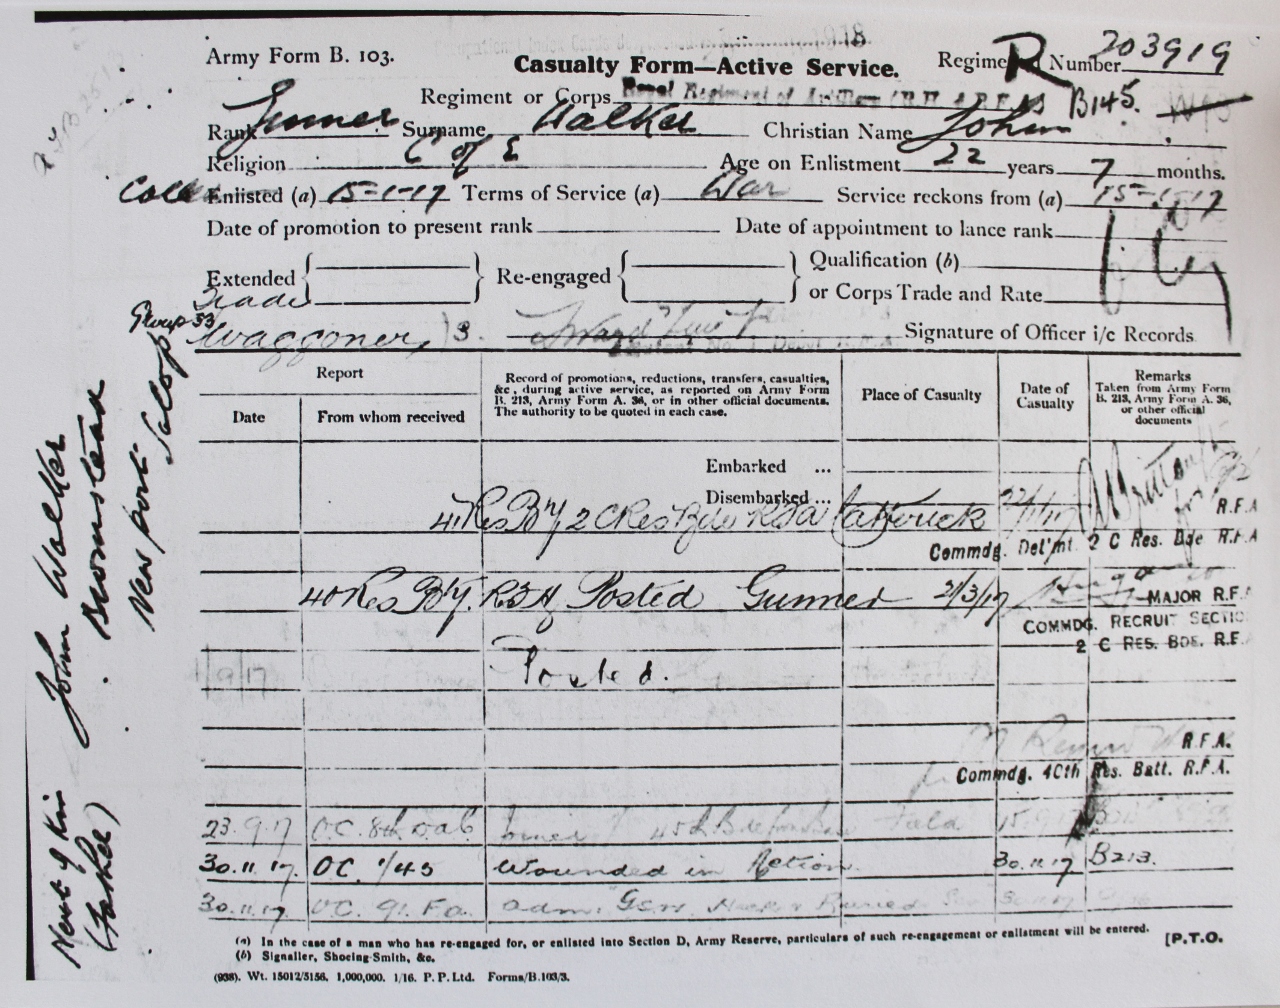 Army Form B. 103.
Casualty Form—Active Service.
Regime R Number 203919
Regiment or Corps Royal Regiment of Artillery (R.H. & R.F.A.) B145.
Rank Gunner Surname Walker Christian Name John
Religion C of E Age on Enlistment 22 years 7 months.
Enlisted (a) 15-1-17 Terms of Service (a) War Service reckons from (a) 15-1-17
Date of promotion to present rank Date of appointment to lance rank
Extended Re-engaged Qualification (b)
or Corps Trade and Rate
Trade
Group 33
Waggoner, Signature of Officer i/c Records
Report
Date From whom received
Record of promotions, reductions, transfers, casualties,
&c., during active service, as reported on Army Form
B. 213, Army Form A. 36, or in other official documents.
The authority to be quoted in each case.
Place of Casualty
Date of
Casualty
Remarks
Taken from Army Form
B. 213, Army Form A. 36,
or other official
documents
Embarked ...
Disembarked ...
41 Res Bty 2 C Res Bde RFA Catterick 22/1/17 R.F.A
Commdg. Det'mt. 2 C Res. Bde R.F.A
40 Res Bty. RFA Posted Gunner 2/3/17 MAJOR R.F.A
COMMDG. RECRUIT SECTIO
2 C RES. BDE. R.F.
Posted.
R.F.A.
Commdg. 40th Res. Batt. R.F.A.
23.9.17 O.C. Field 15.9.17
30.11.17. OC. 1/45 Wounded in Action. 30.11.17 B213.
30.11.17 O.C. 91. F.a. adm.
(a) In the case of a man who has re-engaged for, or enlisted into Section D, Army Reserve, particulars of such re-engagement or enlistment will be entered.
(b) Signaller, Shoeing-Smith, &c.
[P.T.O.
(938). Wt. 15012/5156. 1,000,000. 1/16. P.P. Ltd. Forms/B.103/3.
Next of Kin John Walker
(Father) Brownstead
New port Salop